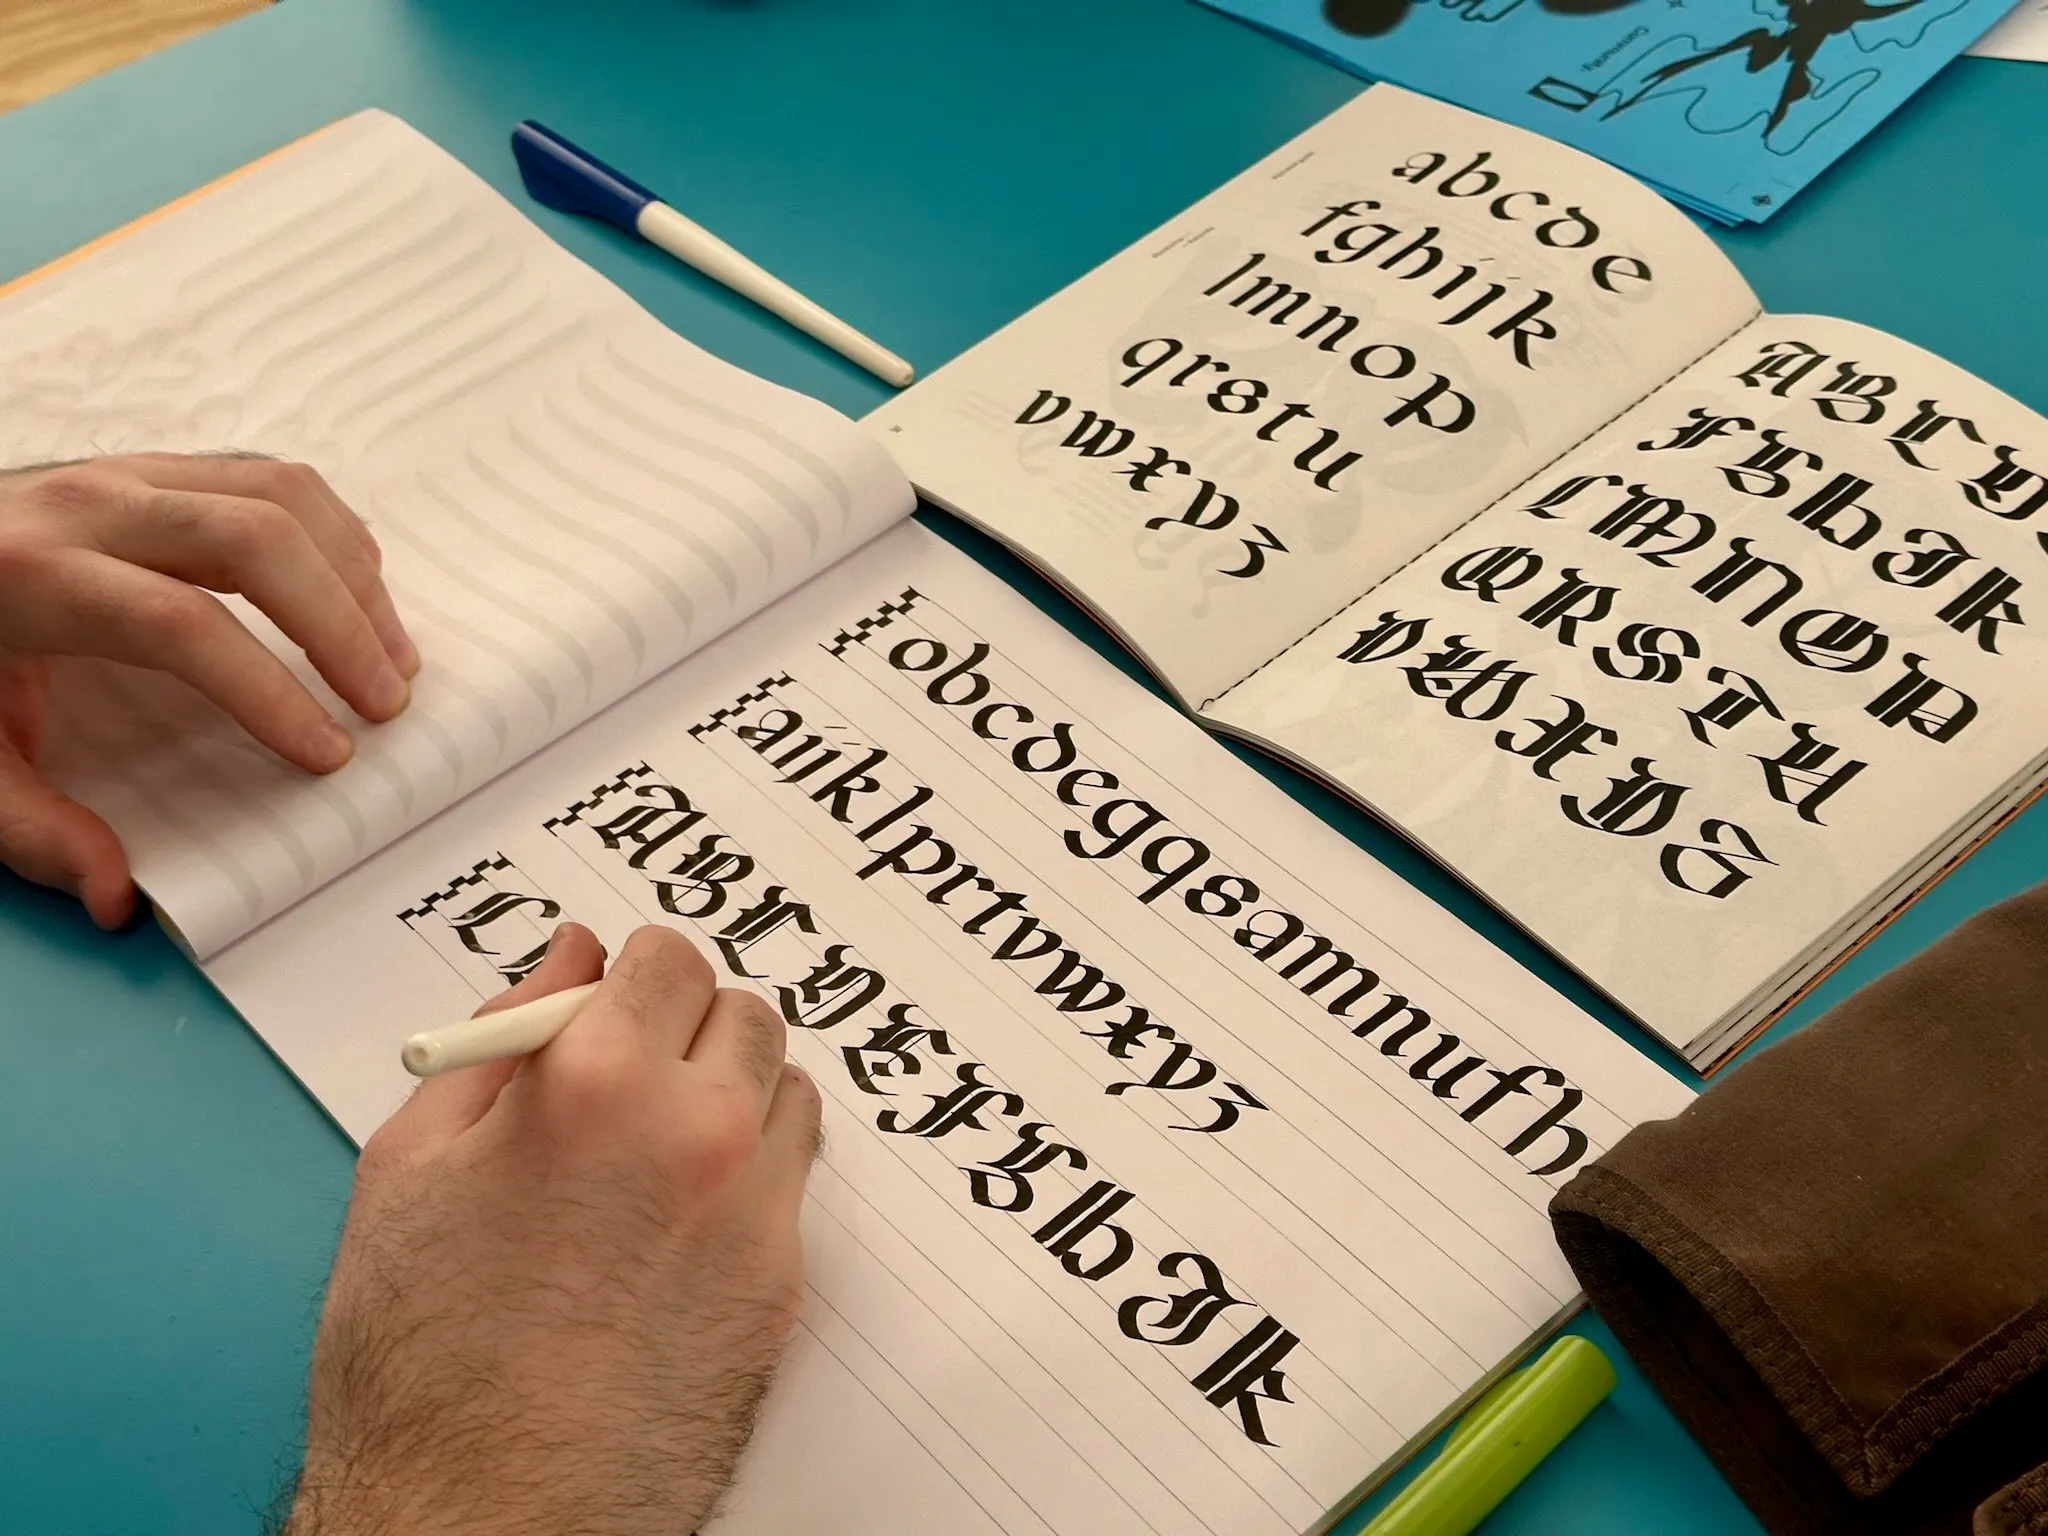 abcde
fghijk
lmnop
qrstu
vwxyz
ABCD
FGHIJK
LMNOP
QRSTU
VWXYZ
obcdegqsamnufh
aijklprtvwxyz
ABCDEFGHIJK
L
Community.